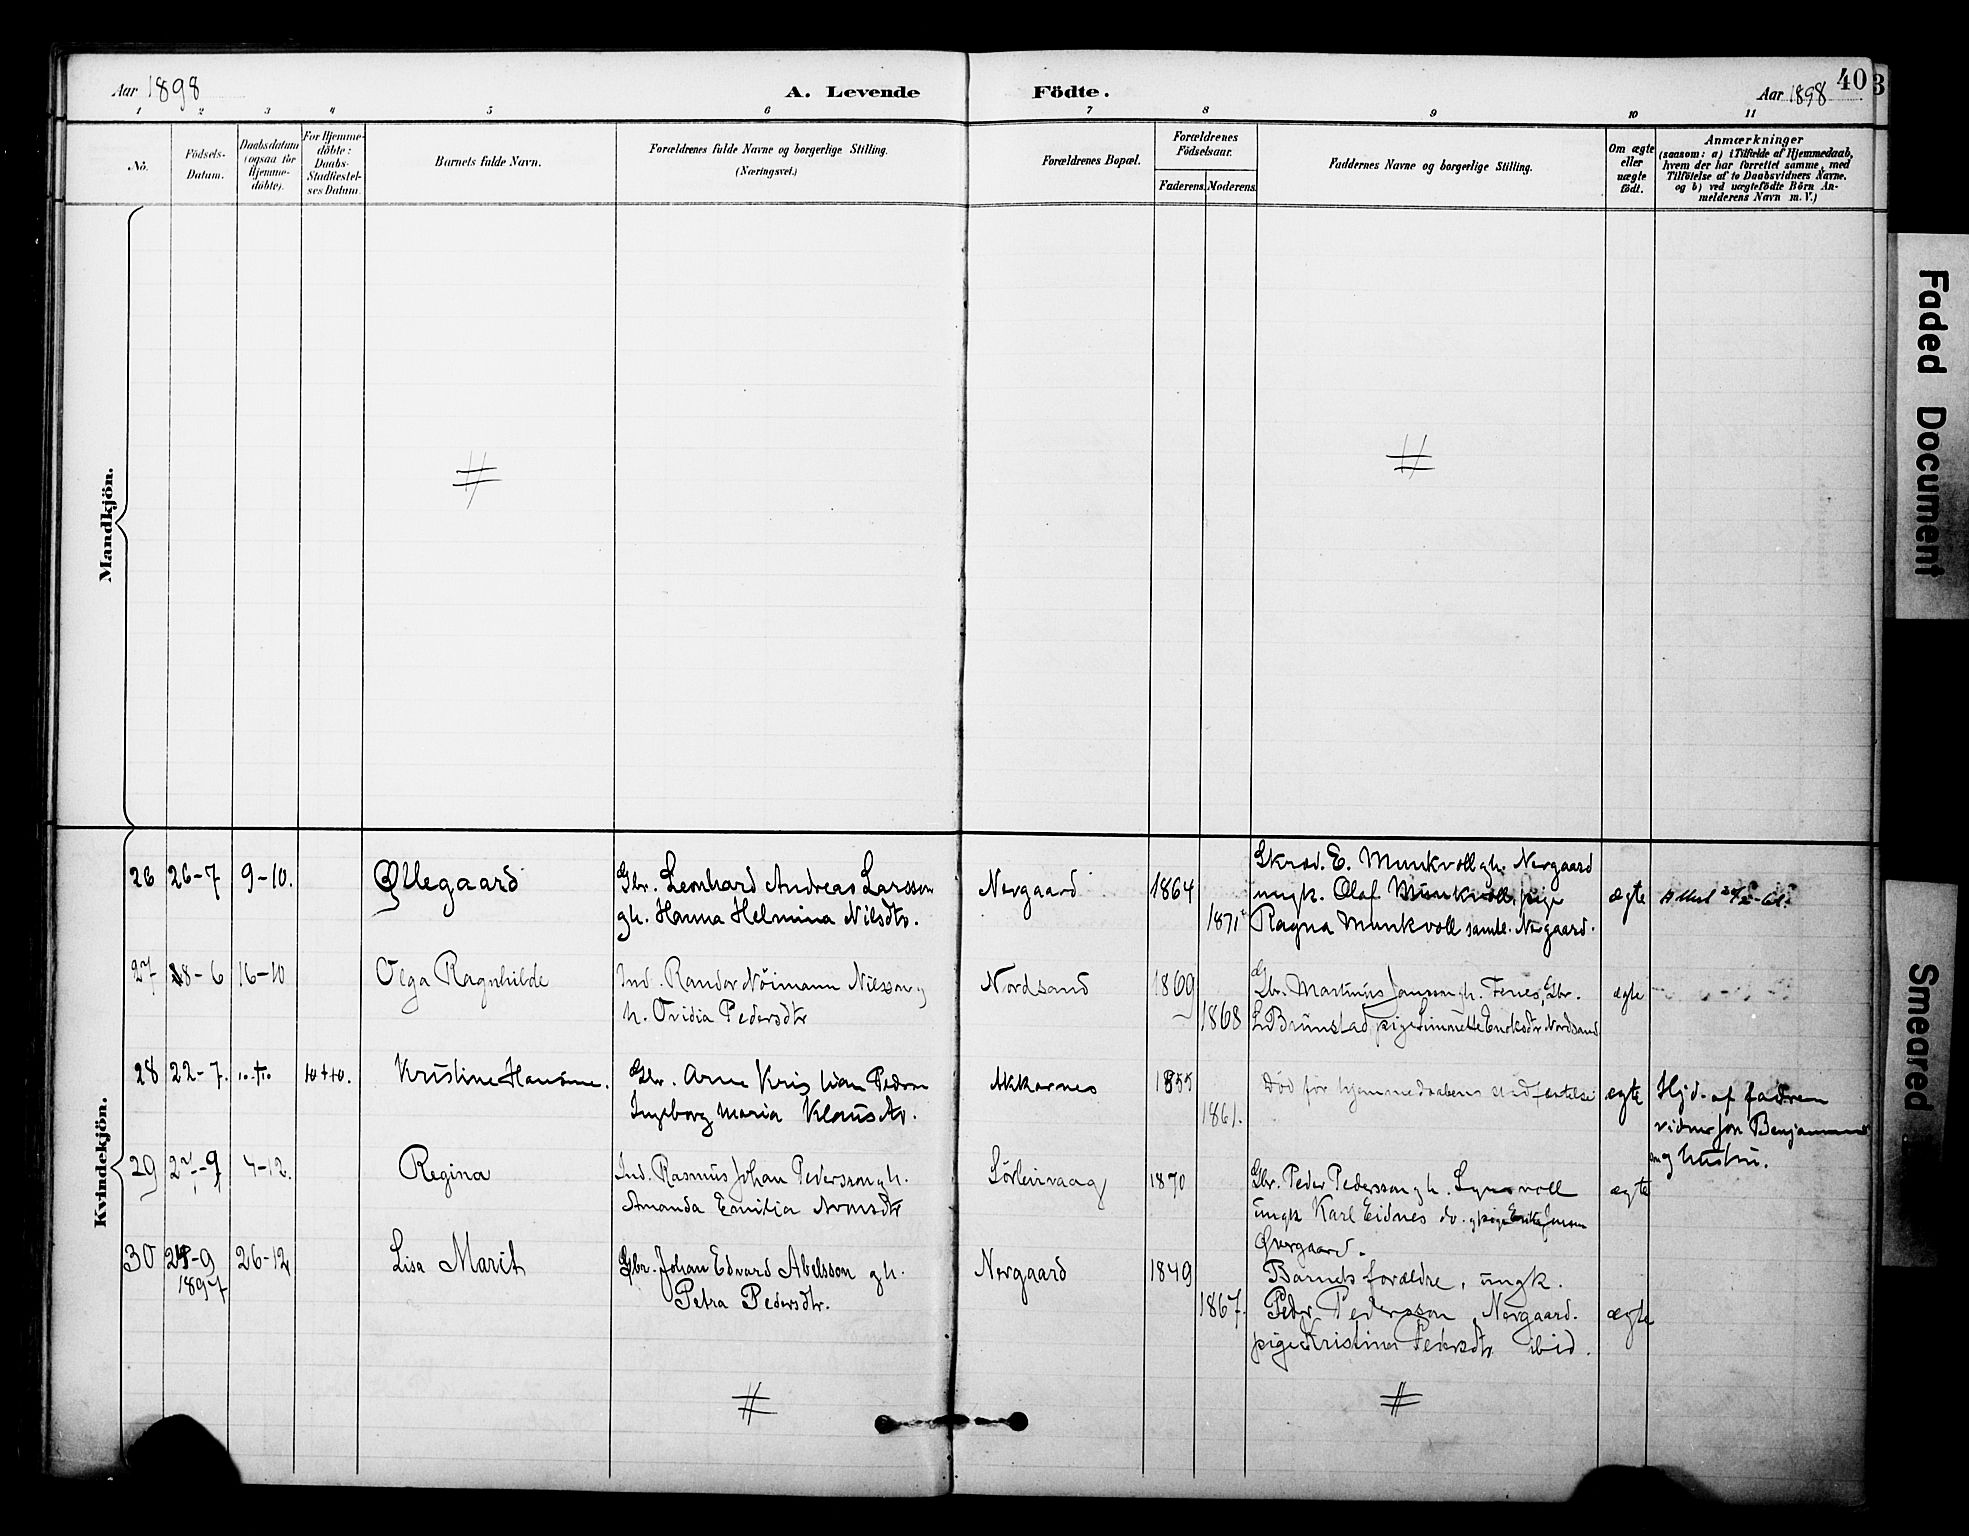 Aar 1898
A. Levende Födte.
Aar 1898
40
3
1 2 3 4 5 6 7 8 9 10 11
No.
Födsels-
Datum.
Daabsdatum
(ogsaa for
Hjemme-
döbte).
For Hjemme-
döbte:
Daabs-
Stadfæstel-
ses Datum.
Barnets fulde Navn.
Forældrenes fulde Navne og borgerlige Stilling.
(Næringsvei.)
Forældrenes Bopæl.
Forældrenes
Födselsaar.
Faderens. Moderens.
Faddernes Navne og borgerlige Stilling.
Om ægte
eller
uægte
födt.
Anmærkninger
(saasom: a) i Tilfælde af Hjemmedaab,
hvem der har forrettet samme, med
Tilföielse af to Daabsvidners Navne,
og b) ved uægtefödte Börn An-
melderens Navn m. V.)
Mandkjön.
Kvindekjön.
26 26-7 9-10. Øllegaard
Gbr. Leonhard Andreas Larsson
gh. Hanna Helmina Nilsdtr.
Norgaard 1864
1871
E. Munkvoll gh. Norgaard
ungk. Olaf Munkvoll, pige
Ragna Munkvoll samtl. Norgaard.
ægte
27 18-6 16-10 Olga Ragnhilde
Ind. Randor Nöimann Nilsson g
h. Ovidia Pedersdtr
Nordsand 1869
1868
Gbr. Martinus Jansson gh. Fenes, Gbr.
L. Brünstad, pige Eriksdtr Nordsand
ægte
28 22-7. Kristine Hansine.
Gbr. Arne Kristian Pedersen
Ingeborg Maria Klausdtr.
Akkarnes 1855
1861.
Död för hjemmedaabens stadfæstelse
ægte
Hjd. af fadren
vidner Jon Benjaminsen
og hustru.
29 27-9 4-12. Regina
Ind. Rasmus Johan Pedersson gh.
Amanda Emilia Aronsdtr
Sörleirvaag 1870
Gbr. Peder Pedersson gh. Lynsvoll
ungk Karl Eidnes do. g pige Jensen
Øvergaard.
ægte
30 24-9 26-12 Lisa Marit
1897
Gbr. Johan Edvard Abelsson gh.
Petra Pedersdtr.
Norgaard 1849
1867.
Barnets forældre, ungk.
Peder Pedersson Norgaard.
pige Kristine Pedersdtr ibid.
ægte
Faded Document
Smeared